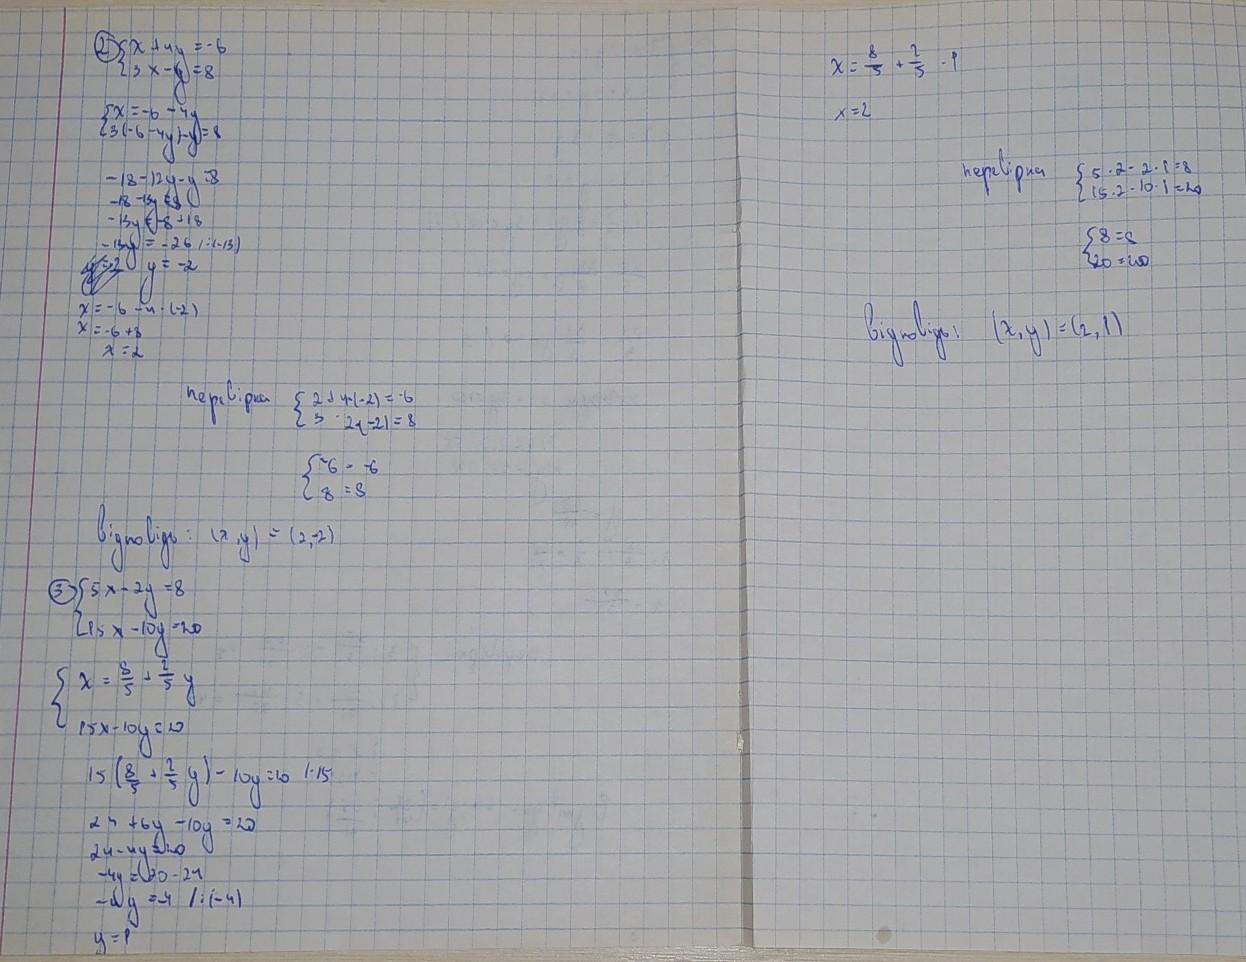 2 { x + 4y = -6
3x - y = 8
{ x = -6 - 4y
3(-6 - 4y) - y = 8
-18 - 12y - y = 8
-18 - 13y = 8
-13y = -8 + 18
-13y = -26 /:(-13)
y = -2
x = -6 - 4·(-2)
x = -6 + 8
x = 2
перевірка { 2 + 4·(-2) = -6
3 · 2-(-2) = 8
{ -6 = -6
8 = 8
Відповідь: (x, y) = (2, -2)
3 { 5x - 2y = 8
15x - 10y = 20
{ x = 8/5 + 2/5 y
15x - 10y = 20
15(8/5 + 2/5 y) - 10y = 20 /·15
24 + 6y - 10y = 20
24 - 4y = 20
-4y = 20 - 24
-4y = -4 /:(-4)
y = 1
x = 8/5 + 2/5 · 1
x = 2
перевірка { 5 · 2 - 2 · 1 = 8
15 · 2 - 10 · 1 = 20
{ 8 = 8
20 = 20
Відповідь: (x, y) = (2, 1)